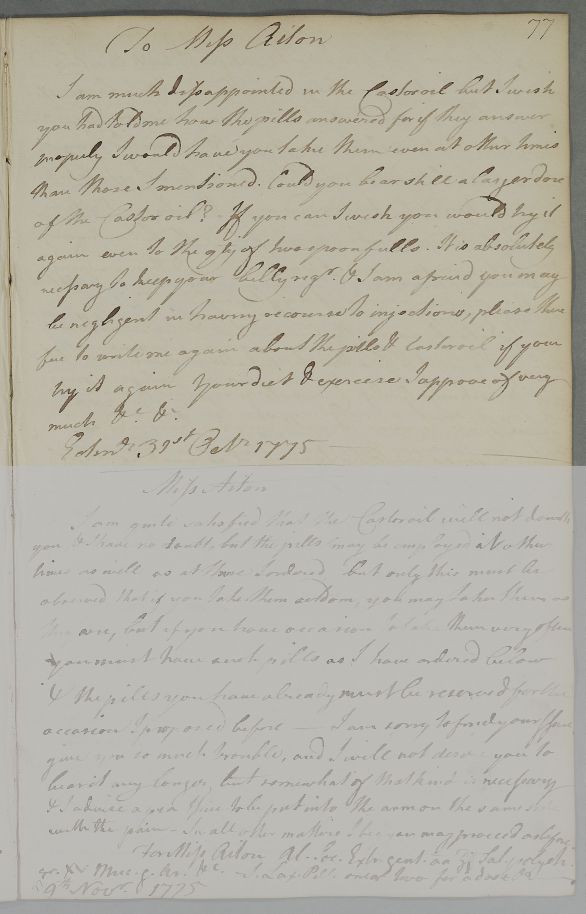 77
To Miss Aiton
I am much disappointed in the Castor oil but I wish
you had told me how the pills answered for if they answer
properly I would have you take them even at other times
than those I mentioned. Could you bear still a larger dose
of the Castor oil? If you can I wish you would try it
again even to the qty of two spoonfulls. It is absolutely
necessary to keep your belly regr. & I am afraid you may
be negligent in having recourse to injections, please there
fore to write me again about the pills & Castor oil if you
try it again Your diet & exercise I approve of very
much &c. &c.
Edinr. 31st Octr. 1775
Miss Aiton
I am quite satisfied that the Castor oil will not do with
you & I have no doubt, but the pills may be employed at other
times as well as at those I ordered, but only this must be
observed that if you take them seldom, you may take them as
they are, but if you have occasion to take them very often
you must have such pills as I have ordered below
& the pills you have already must be reserved for the
occasion I proposed before — I am sorry to find your Issue
give you so much trouble, and I will not desire you to
bear it any longer, but somewhat of that kind is necessary
& I advise a pea Issue to be put into the arm on the same side
with the pain — In all other matters I see you may proceed as before
For Miss Aiton Al. Soc. Extr. gent. aa Sal. polych.
gr. Muc. g. Ar. &c. Pill. one or two for a dose
9th Novr. 1775